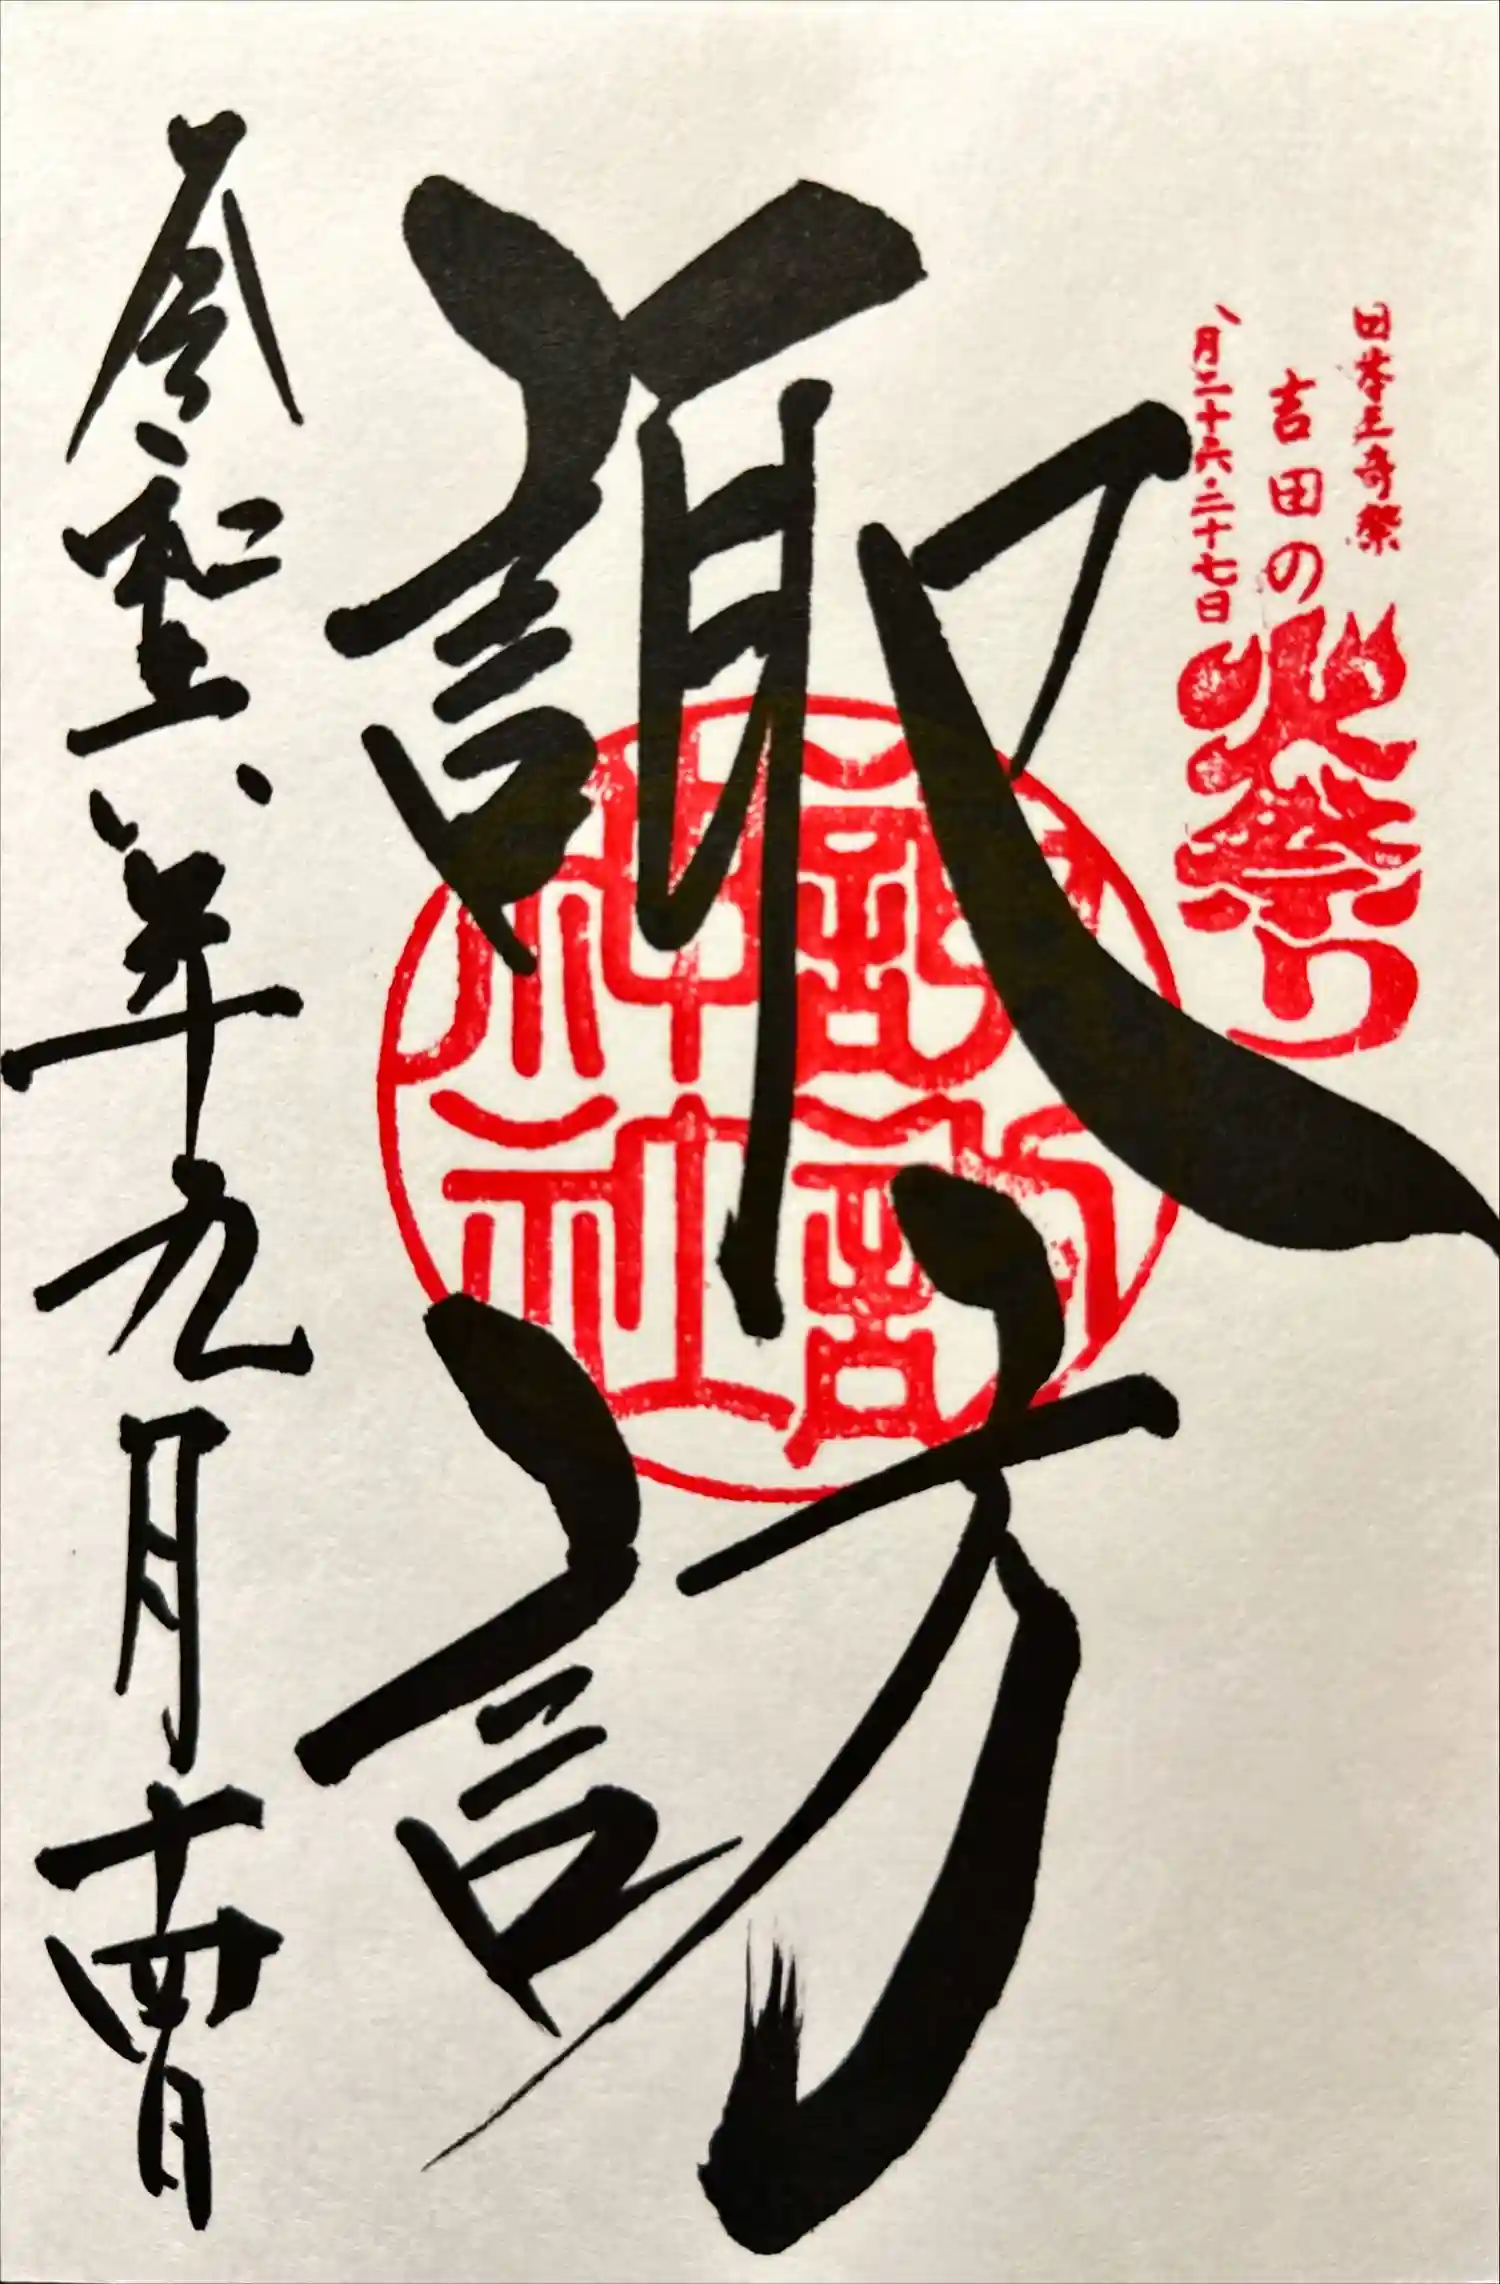 日本三奇祭
吉田の火祭り
八月二十六・二十七日
諏訪
諏訪神社
令和六年九月十四日